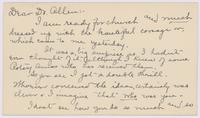 Dear Dr. Allen:-
I am ready for church and much
dressed up with the beautiful corsage
which came to me yesterday.
It was a big surprise as I hadn't
even thought of it although I knew of some
who has received them.
So you see I got a double thrill.
Whoever conceived the idea, certainly was
clever & I imagine that who was you.
I don't see how you do so much and so